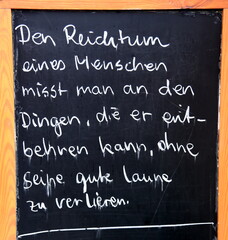 Den Reichtum
eines Menschen
misst man an den
Dingen, die er ent-
behren kann, ohne
seine gute Laune
zu verlieren.